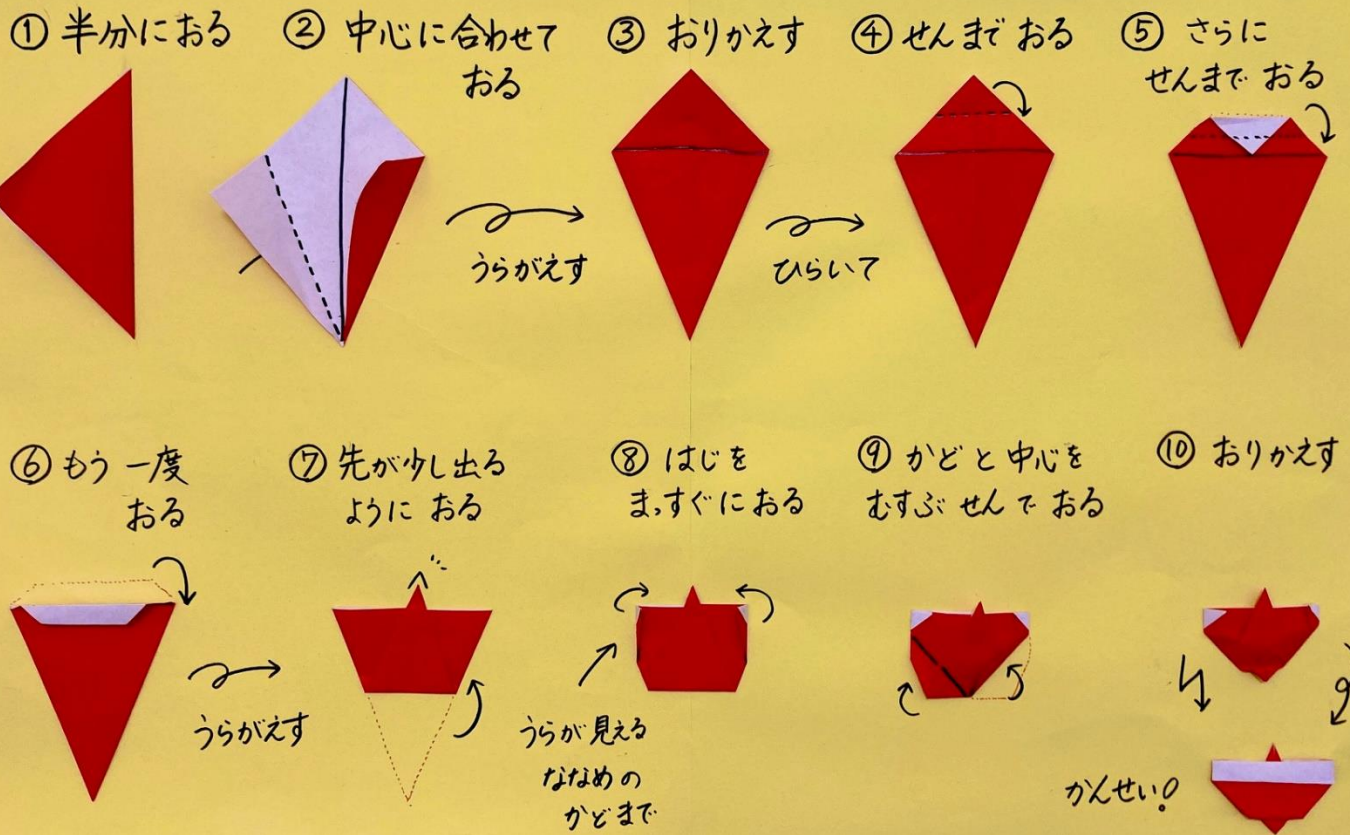 ① 半分におる
② 中心に合わせて
おる
うらがえす
③ おりかえす
ひらいて
④ せんまで おる
⑤ さらに
せんまで おる
⑥ もう一度
おる
うらがえす
⑦ 先が少し出る
ように おる
⑧ はじを
まっすぐに おる
うらが見える
ななめの
かどまで
⑨ かどと中心を
むすぶ せんで おる
⑩ おりかえす
かんせい!